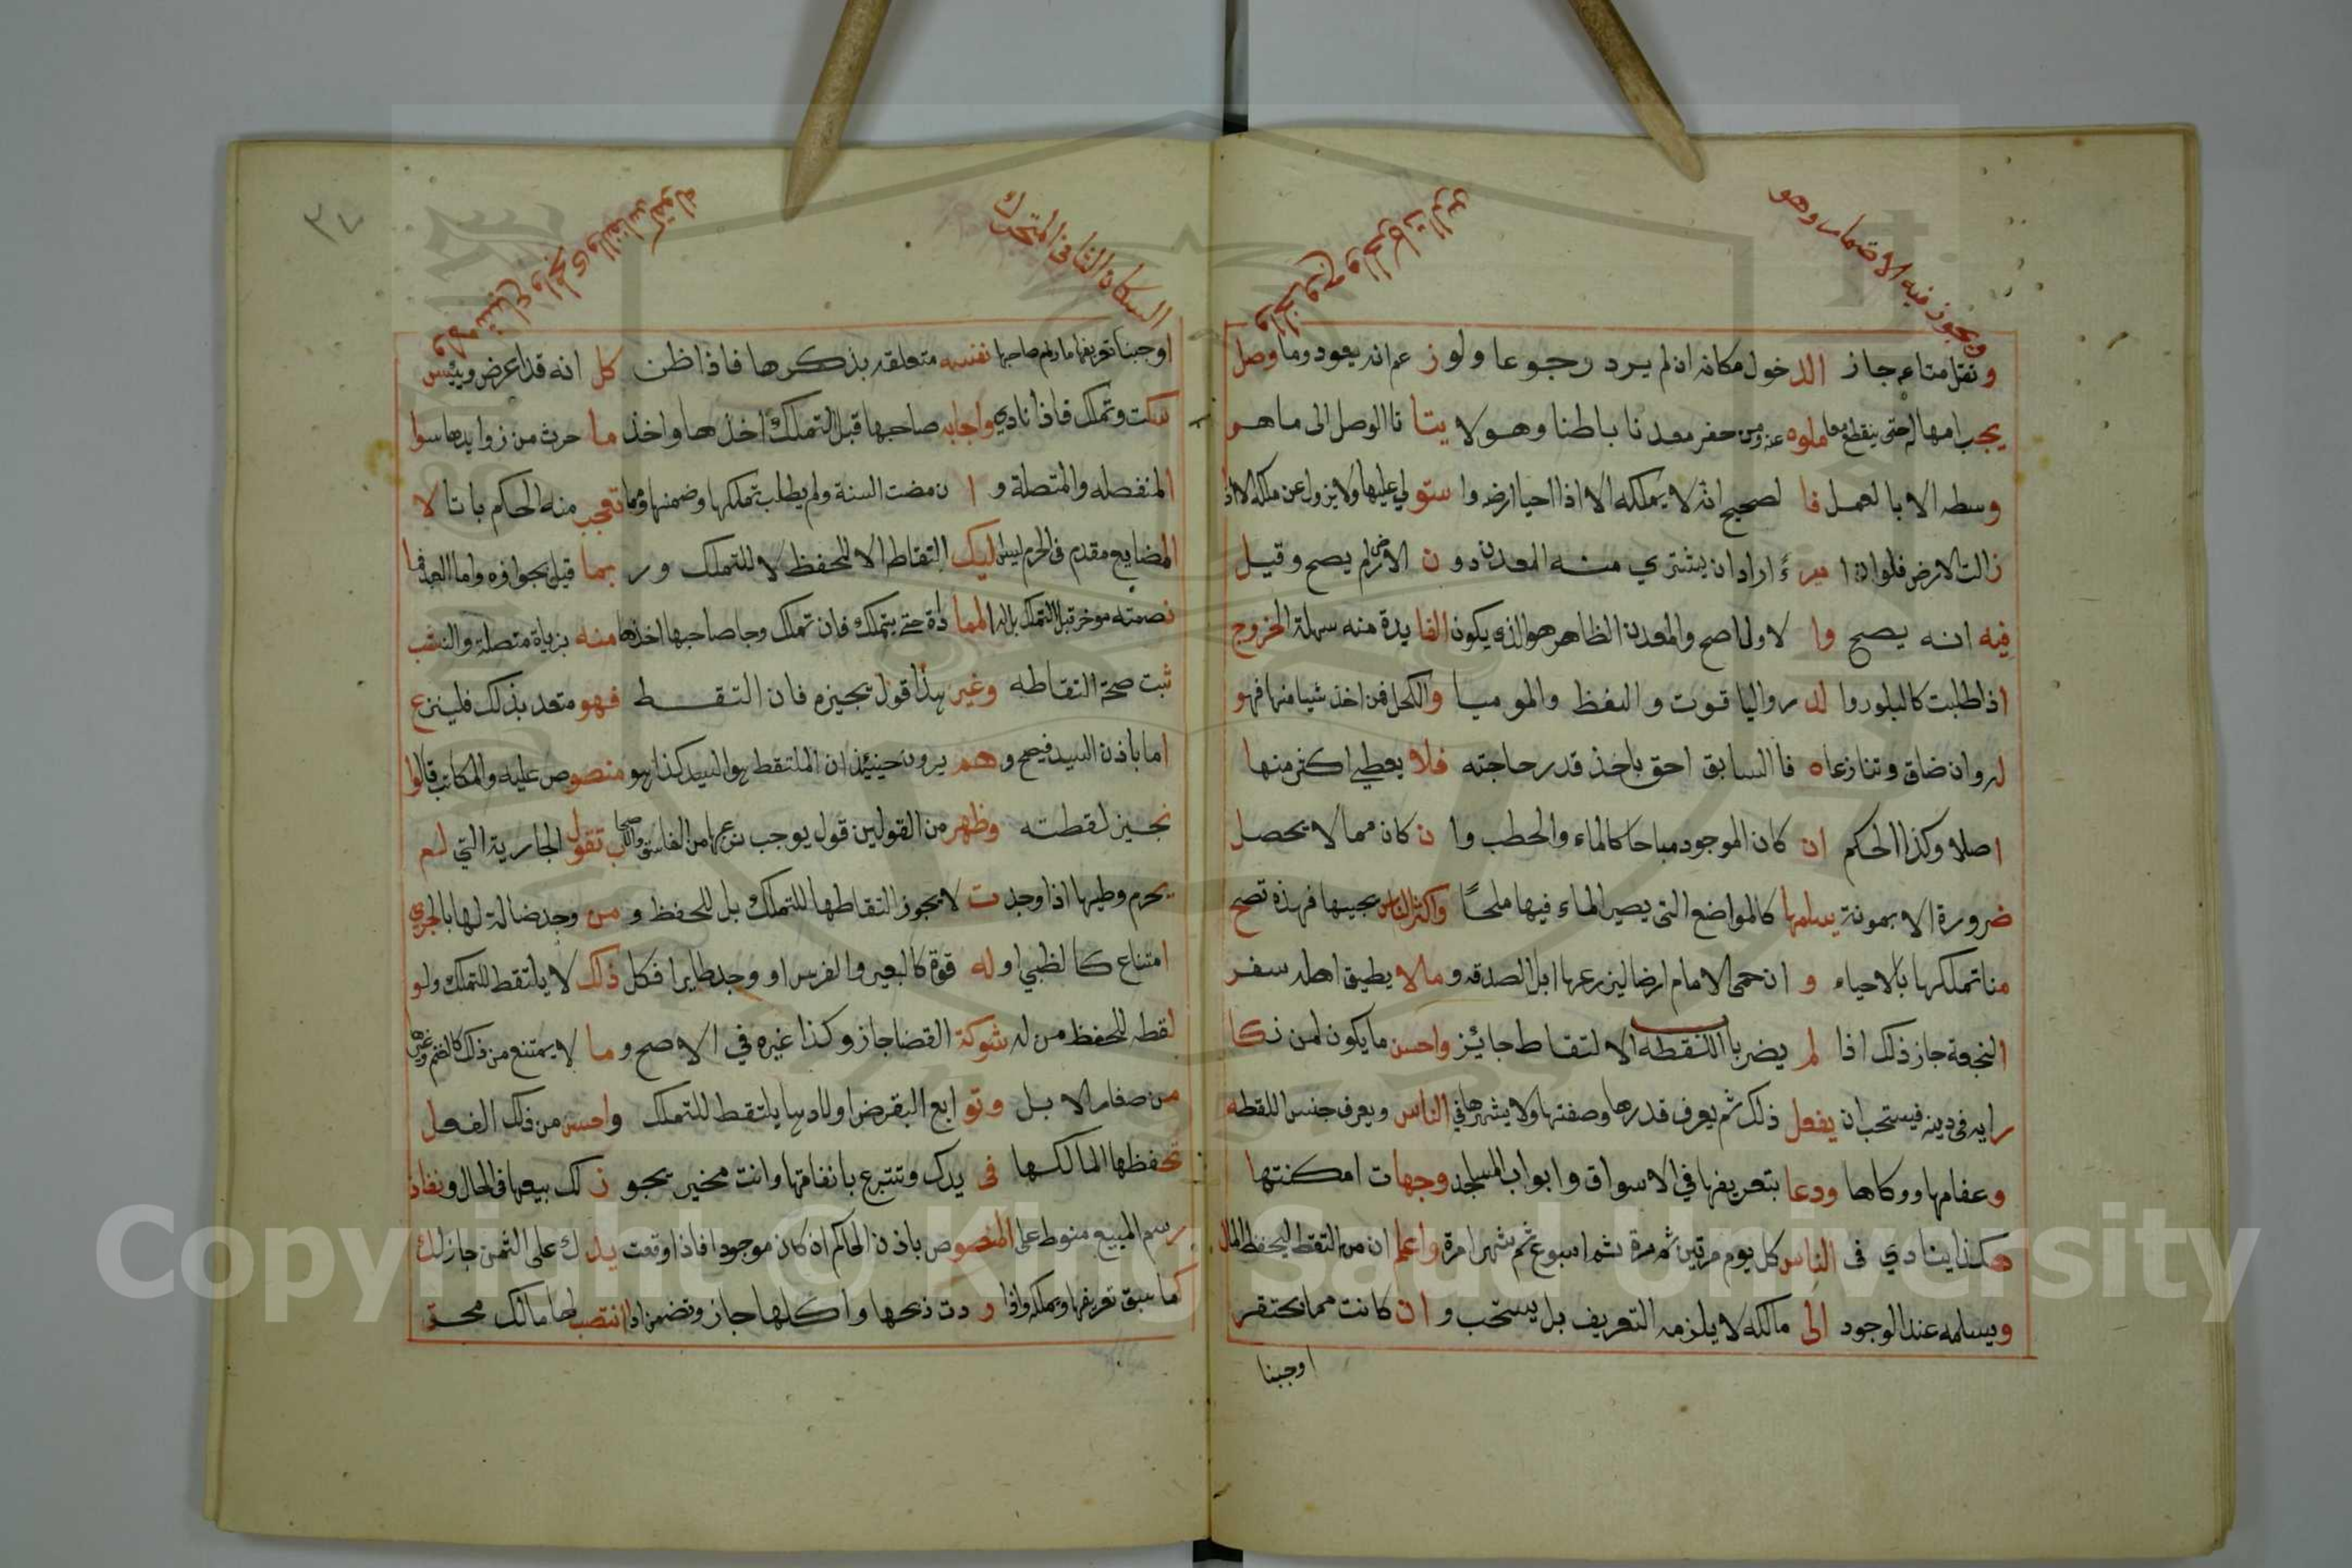 ويجوز فيه الاضمار وهو
والخروج والحركات الرس
ونقل متاعه جاز الدخول مكانه ان لم يرد رجوعا ولو زعم انه يعود وما وصل
يجب امهاله حتى ينقطع معاملوه عنه ومن حفر معدنا باطنا وهو لا يتاتا الوصل الى ما هو
وسطه الا بالعمل فالصحيح انه لا يملكه الا اذا احيا ارضه واستولى عليها ولا يزول عن ملكه الا اذا
زالت الارض فلو ان امرءً اراد ان يشتري منه المعدن دون الارض لم يصح وقيل
فيه انه يصح والاول اصح والمعدن الظاهر هو الذي يكون الفايدة منه سهلة الخروج
اذا طلبت كالبلور والدر والياقوت والنفظ والموميا والكحل فمن اخذ شيا منها فهو
له وان ضاق وتنازعاه فالسابق احق باخذ قدر حاجته فلا يعطى اكثر منها
اصلا وكذا الحكم ان كان الموجود مباحا كالماء والحطب وان كان مما لا يحصل
ضرورة الا بمونة يسلمها كالمواضع التي يصير الماء فيها ملحًا واكثر الناس يجيبها فهذه تصح
منا تملكها بالاحياء وان حمى الامام ارضا ليزرعها ابل الصدقه وما لا يطيق اهله سفر
النجعة جاز ذلك اذا لم يضر با اللقطه الالتقاط جائز واحسن ما يكون لمن زكا
رايه في دينه فيستحب ان يفعل ذلك ثم يعرف قدرها وصفتها ولا يشهرها في الناس ويعرف جنس اللقطه
وعفاصها ووكاها ودعا بتعريفها في الاسواق وابواب المساجد وجهات امكنتها
هكذا ينادي في الناس كل يوم مرتين ثم مرة ثم اسبوع ثم شهرا مرة واعلم ان من التقط ليحفظ المال
ويسلمه عند الوجود الى مالكه لا يلزمه التعريف بل يستحب وان كانت مما يحتقر
اوجبنا
السكان الثاني المتحرك
والاشباع والمجرى والنفاذ كقوله
٣٧
اوجبنا تعريفها ما دام صاحبها نفسه متعلقه بذكرها فاذا ظن كل انه قد اعرض ويئس
سكت وتملك فاذا نادي واجابه صاحبها قبل التملك اخذها واخذ ما حرث من زوايدها سوا
المنفصله والمتصلة وان مضت السنة ولم يطلب تملكها وضمنها ومما تعجب منه الحكم بانا لا
المضايع مقدم في الحرم ليس ليك التقاط الا للحفظ لا للتملك وربما قيل بجوازه واما العبد فما
نصمته موخر قبل التملك بل له المماداة حتى يتملك فان تملك وجا صاحبها اخذها منه بزيادة متصلة والنقب
ثبت صحة التقاطه وغير هذا قول يجيزه فان التقط فهو متعد بذلك فلينزع
اما باذن السيد فيصح وهم يرون حينئذ ان الملتقط هو السيد كذا هو منصوص عليه والمكاتب قالوا
نجيز لقطته وظهر من القولين قول يوجب نزعها من الفاسق والاب تقول الجارية التي لم
يحرم وطيها اذا وجدت لا يجوز التقاطها للتملك بل للحفظ ومن وجد ضالة لها بالجري
امتناع كالظبي او له قوة كالبعير والفرس او وجد طايرا فكل ذلك لا يلتقط للتملك ولو
لقطه للحفظ من له شوكة القضا جاز وكذا غيره في الاصح وما لا يمتنع من ذلك كالغنم وغيرها
من صغار الابل وتوابع البقر من اولادها يلتقط للتملك واحسن من ذلك الفعل
تحفظها المالكها في يدك وتتبرع بانفاقها وانت مخير يجوز لك بيعها في الحال ونفاذ
رسم المبيع منوط على المنصوص باذن الحاكم ان كان موجودا فاذا وقعت يدك على الثمن جاز لك
كما سبق تعريفها وتملكه واذا ردت ذبحها واكلها جاز وتضمن اذا انتصب لها مالك محق